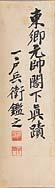 東郷元帥閣下真蹟
一戸兵衛鑑之